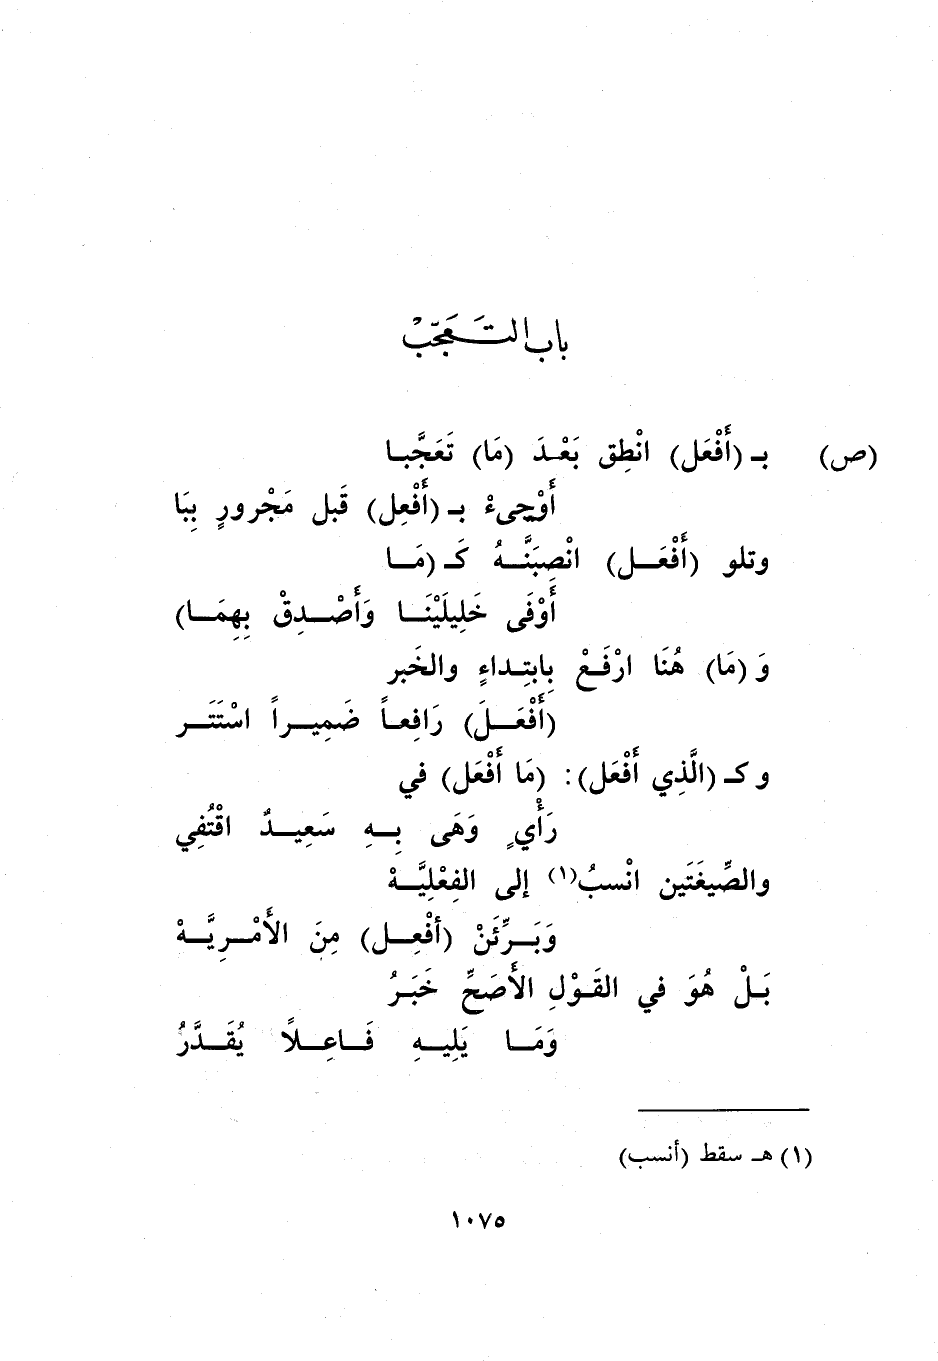 باب التَّعَجّبْ
(ص) بـ (أَفْعَل) انْطِق بَعْدَ (مَا) تَعَجَّبا
أَوْجِىءْ بـ (أَفْعِل) قَبل مَجْرورٍ بِبَا
وتلو (أَفْعَل) انْصِبَنَّهُ كَـ (مَا
أَوْفَى خَلِيلَيْنَا وَأَصْدِقْ بِهِمَا)
وَ (مَا) هُنَا ارْفَعْ بِابتِداءٍ والخَبر
(أَفْعَلَ) رَافِعاً ضَمِيراً اسْتَتَر
و كـ (الَّذِي أَفْعَل): (مَا أَفْعَل) في
رَأْيٍ وَهَى بِهِ سَعِيدٌ اقْتُفِي
والصِّيغَتَين انْسبُ(١) إلى الفِعْلِيَّهْ
وَبَرِّئَنْ (أفْعِل) مِنَ الأَمْرِيَّهْ
بَلْ هُوَ في القَوْلِ الأَصَحِّ خَبَرُ
وَمَا يَلِيهِ فَاعِلاً يُقَدَّرُ
(١) هـ سقط (أنسب)
١٠٧٥